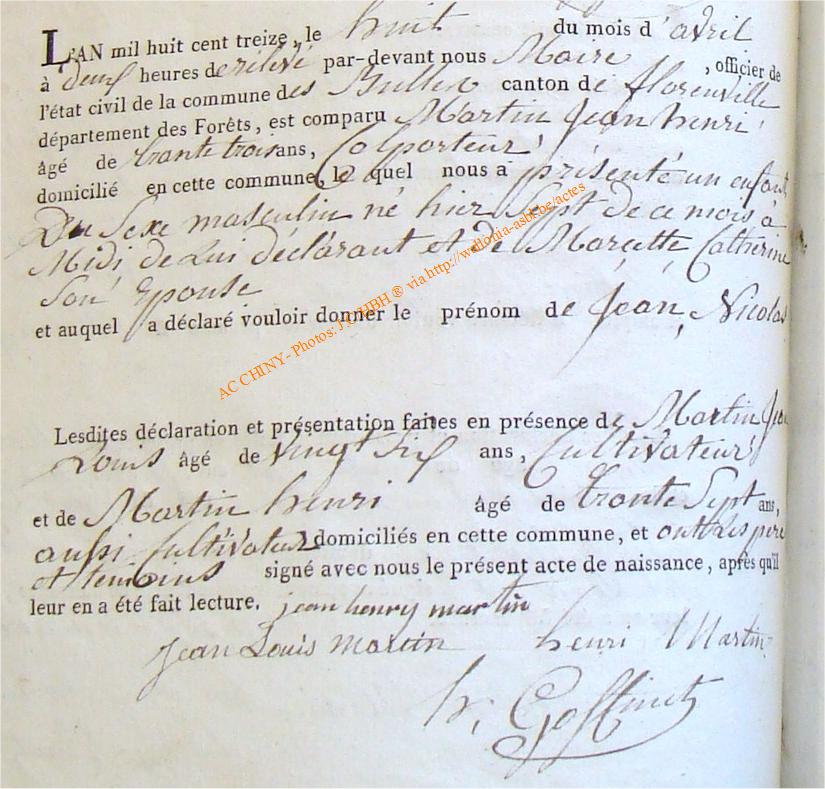 L'AN mil huit cent treize, le huit du mois d'avril
à deux heures de rélivé par-devant nous Maire, officier de
l'état civil de la commune des Bulles canton de florenville
département des Forêts, est comparu Martin Jean henri
âgé de trante trois ans, Colporteur
domicilié en cette commune, le quel nous a présenté un enfant
Du Sexe masculin né hier Sept de ce mois à
Midi de Lui déclarant et de Marcette Catherine
Son Epouse
et auquel a déclaré vouloir donner le prénom de Jean, Nicolas
AC CHINY- Photos: via http://wallonia-asbl.be/actes
Lesdites déclaration et présentation faites en présence de Martin Jean
Louis âgé de vingt Six ans, Cultivateur
et de Martin henri âgé de trante Sept ans,
aussi Cultivateur domiciliés en cette commune, et ont les pere
et temoins signé avec nous le présent acte de naissance, après qu'il
leur en a été fait lecture. jean henry martin
Jean Louis martin henri Martin
h, Goffinet